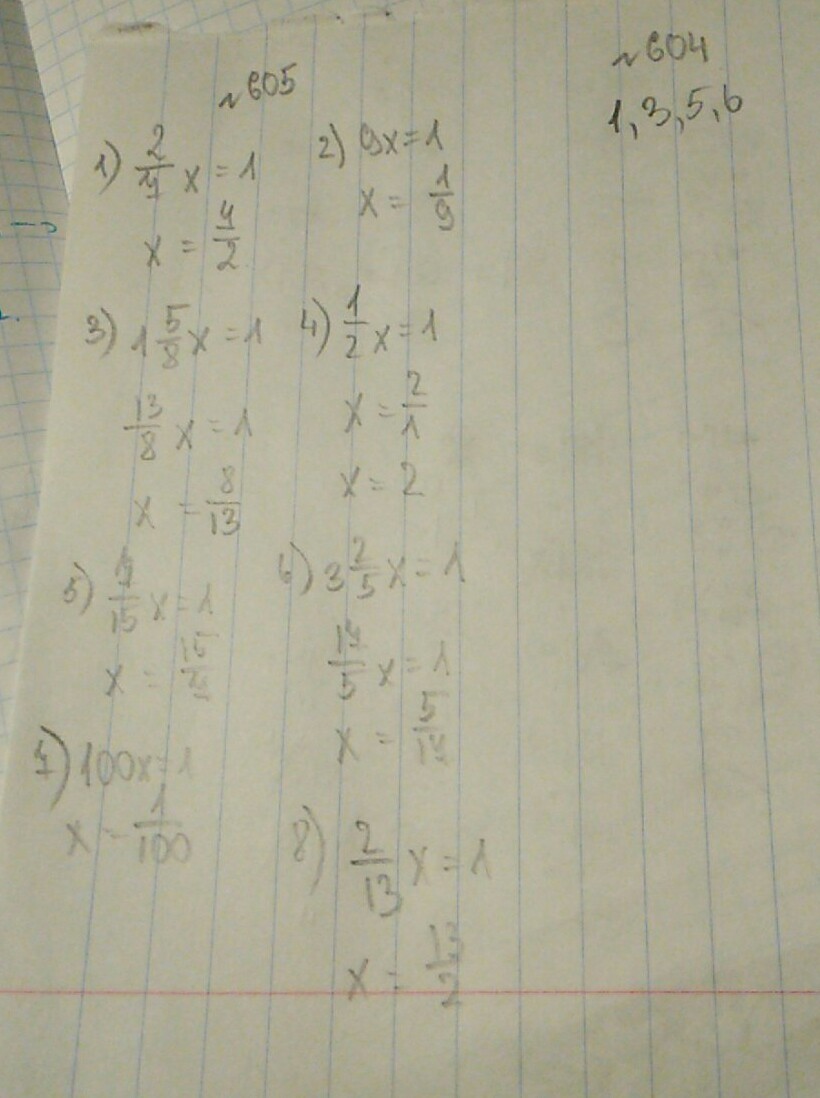 №605
№604
1,3,5,6
1) 2/7 x = 1
x = 7/2
2) 9x = 1
x = 1/9
3) 1 5/8 x = 1
13/8 x = 1
x = 8/13
4) 1/2 x = 1
x = 2/1
x = 2
5) 7/15 x = 1
x = 15/7
6) 3 2/5 x = 1
17/5 x = 1
x = 5/17
7) 100x = 1
x = 1/100
8) 2/13 x = 1
x = 13/2